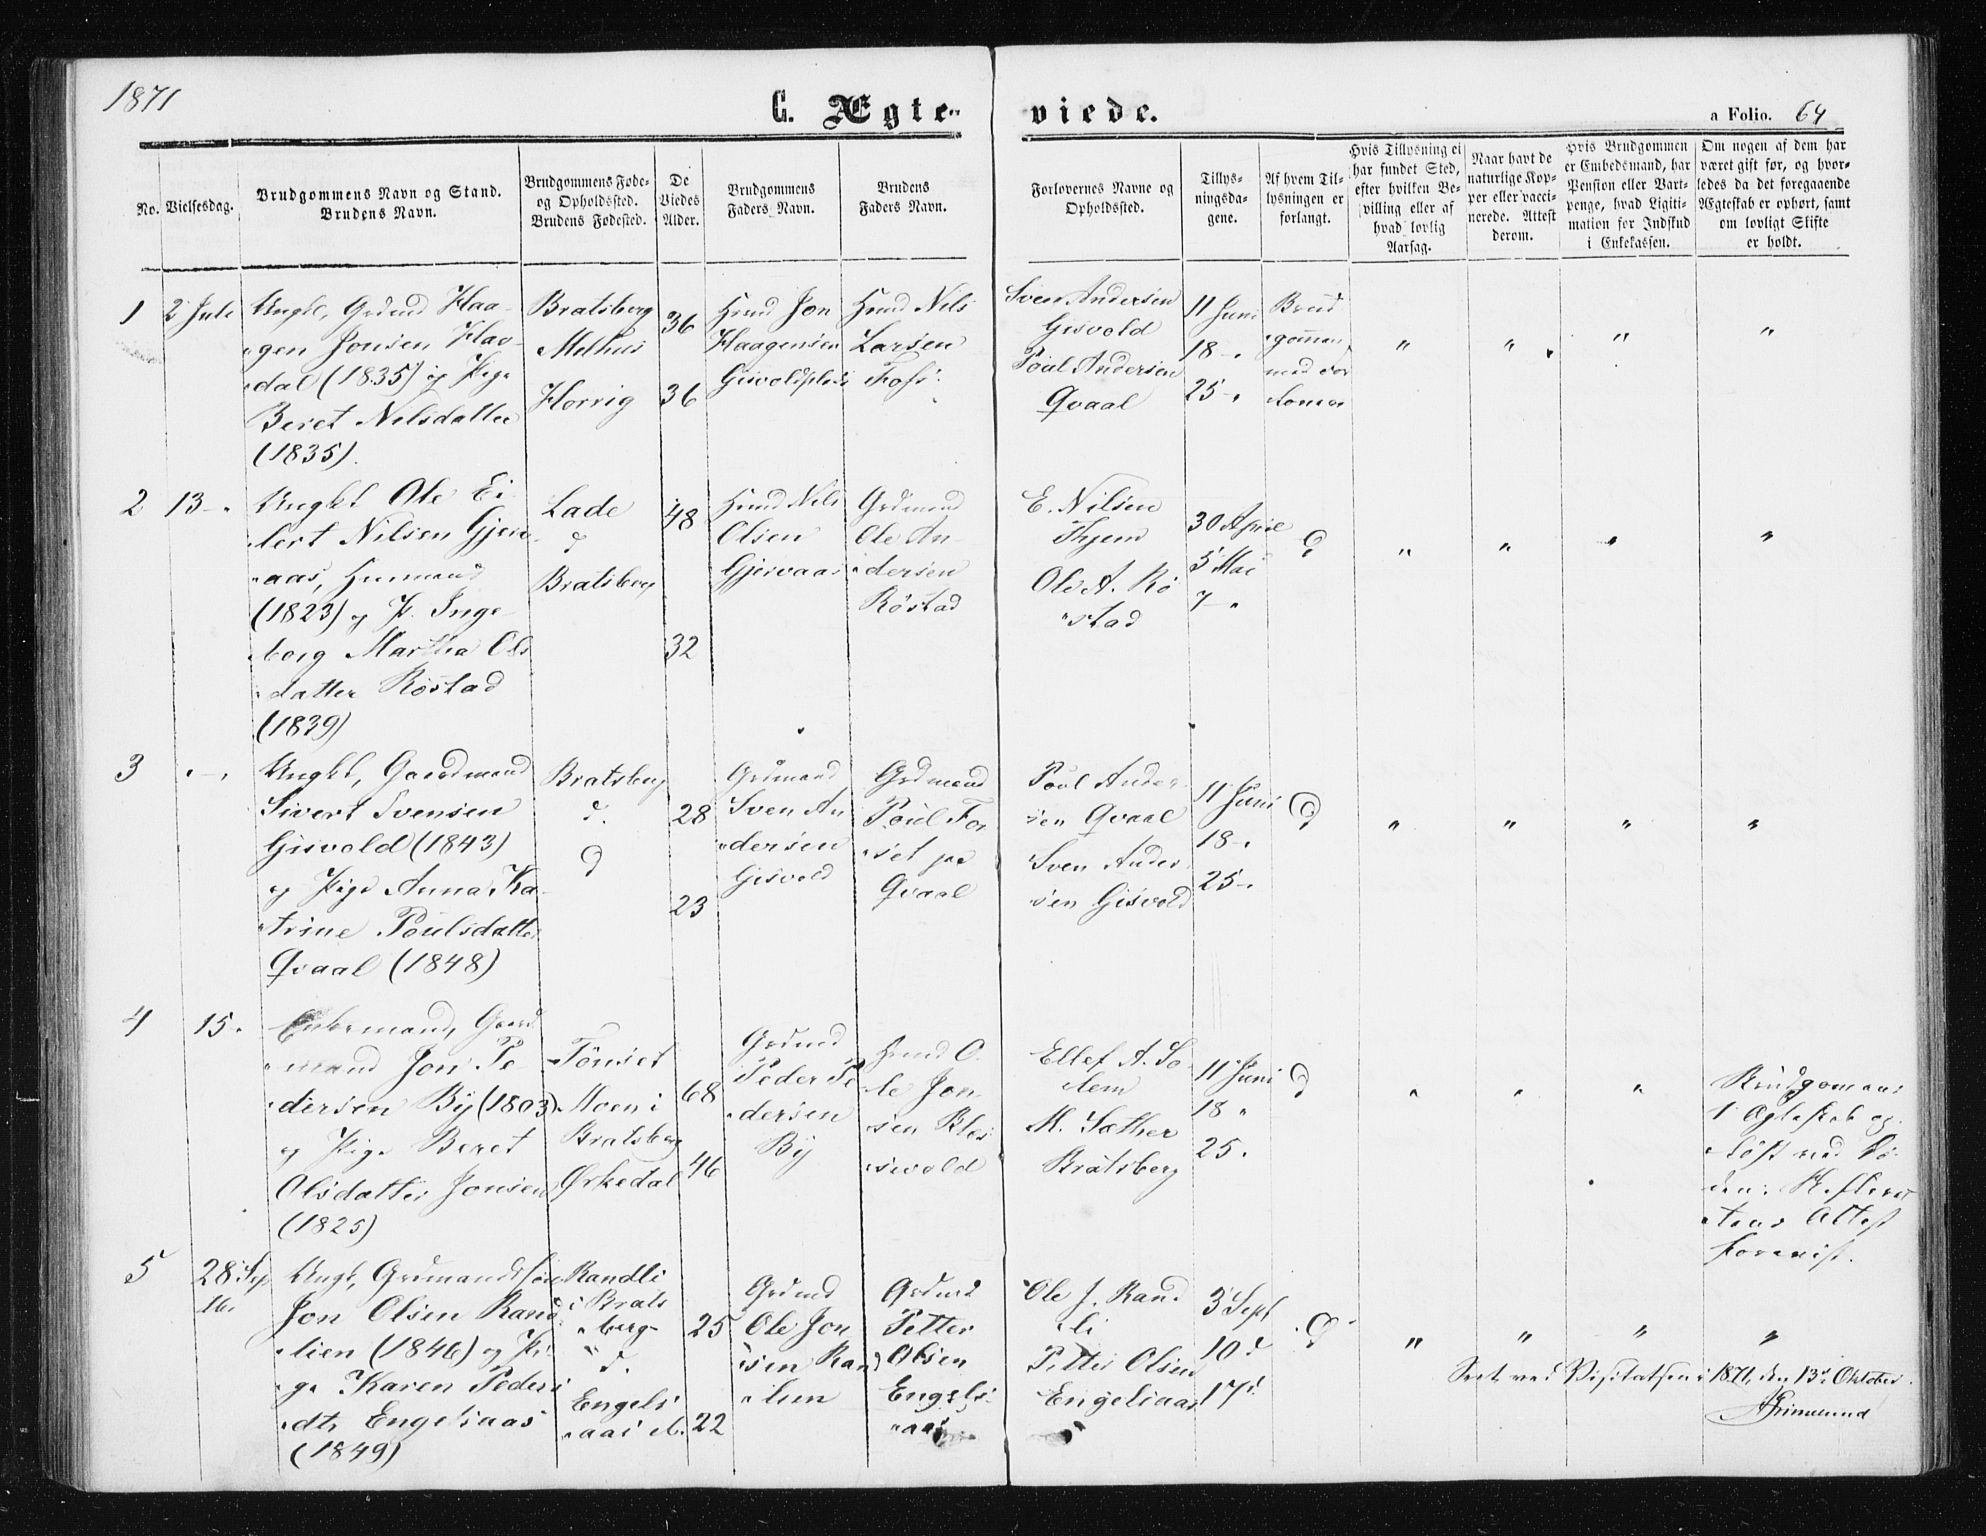 1871
C. Ægte-
viede.
a Folio. 64
No.
Vielsesdag.
Brudgommens Navn og Stand.
Brudens Navn.
Brudgommens Føde-
og Opholdssted.
Brudens Fødested.
De
Viedes
Alder.
Brudgommens
Faders Navn.
Brudens
Faders Navn.
Forlovernes Navne og
Opholdssted.
Tillys-
ningsda-
gene.
Af hvem Til-
lysningen er
forlangt.
Hvis Tillysning ei
har fundet Sted,
efter hvilken Be-
villing eller af
hvad lovlig
Aarsag.
Naar havt de
naturlige Kop-
per eller vacci-
nerede. Attest
derom.
Hvis Brudgommen
er Embedsmand, har
Pension eller Vart-
penge, hvad Ligiti-
mation for Indskud
i Enkekassen.
Om nogen af dem har
været gift før, og hvor-
ledes da det foregaaende
Ægteskab er ophørt, samt
om lovligt Skifte
er holdt.
1
2 Juli
Ungk, Grdmd Haa-
gen Jonsen Hav-
dal (1835) og Pige
Beret Nilsdatter
(1835).
Bratsberg
Melhus
Horrig
36
36
Hmd Jon
Haagensen
Gisvoldplads
Hmd Nils
Larsen
Foss
Sven Andersen
Gisvold
Poul Andersen
Qvaal
11 Juni
18 -
25 -
Brud
gommen
" " " "
2
13 -
Ungkl Ole Ei-
lert Nilsen Gjerv-
aas, Husmand
(1823) og P. Inge-
borg Martha Ols
datter Röstad
(1839)
Lade
d
Bratsberg
48
32
Hmd Nils
Olsen
Gjervaas
Grdmand
Ole An-
dersen
Röstad
E. Nilsen
Thjem
Ole A. Rö
stad
30 April
5 Mai
7 "
d
" " " "
3
" - "
Ungkl, Gaardmand
Sivert Svensen
Gisvold (1843)
og Pige Anna Ka-
trine Poulsdatter
Qvaal (1848)
Bratsberg
d.
d
28
23
Grdmand
Sven An
dersen
Gisvold
Grdmand
Poul For
set paa
Qvaal
Poul Ander
sen Qvaal
Sven Ander
sen Gisvold
11 Juni
18 -
25 -
d
" " " "
4
15 -
Enkemand, Gaard
mand Jon Pe
dersen By (1803)
og Pige Beret
Olsdatter Jonsen
(1825)
Tönset
Moen i
Bratsberg
Ørkedal
68
46
Grdmd
Peder Pe
dersen
By
Hmd O-
le Jon
sen Bles
svold
Ellef A. So
lem
M. Sæther
Bratsberg
11 Juni
18 "
25 "
d
" " "
Brudgommens
1 Ægteskab op-
löst ved Dö-
den. Skifteret
tens Attest
forevist.
5
28 Sep
Ungk, Grdmands sön
Jon Olsen Rand
lien (1846) og Pi-
ge Karen Peders
dtr Engelsaas
(1849)
Randli
i Brats
berg
d.
Engels
aas
25
22
Grdmd
Ole Jon
sen Ran
lien
Grdmd
Petter
Olsen
Engels
aas
Ole J. Rand
li
Petter Olsen
Engelsaas
3 Sept
10 d
17 d
d
" " " "
Seet ved Visitatsen i 1871, den 13de Oktober.
AGrimelund